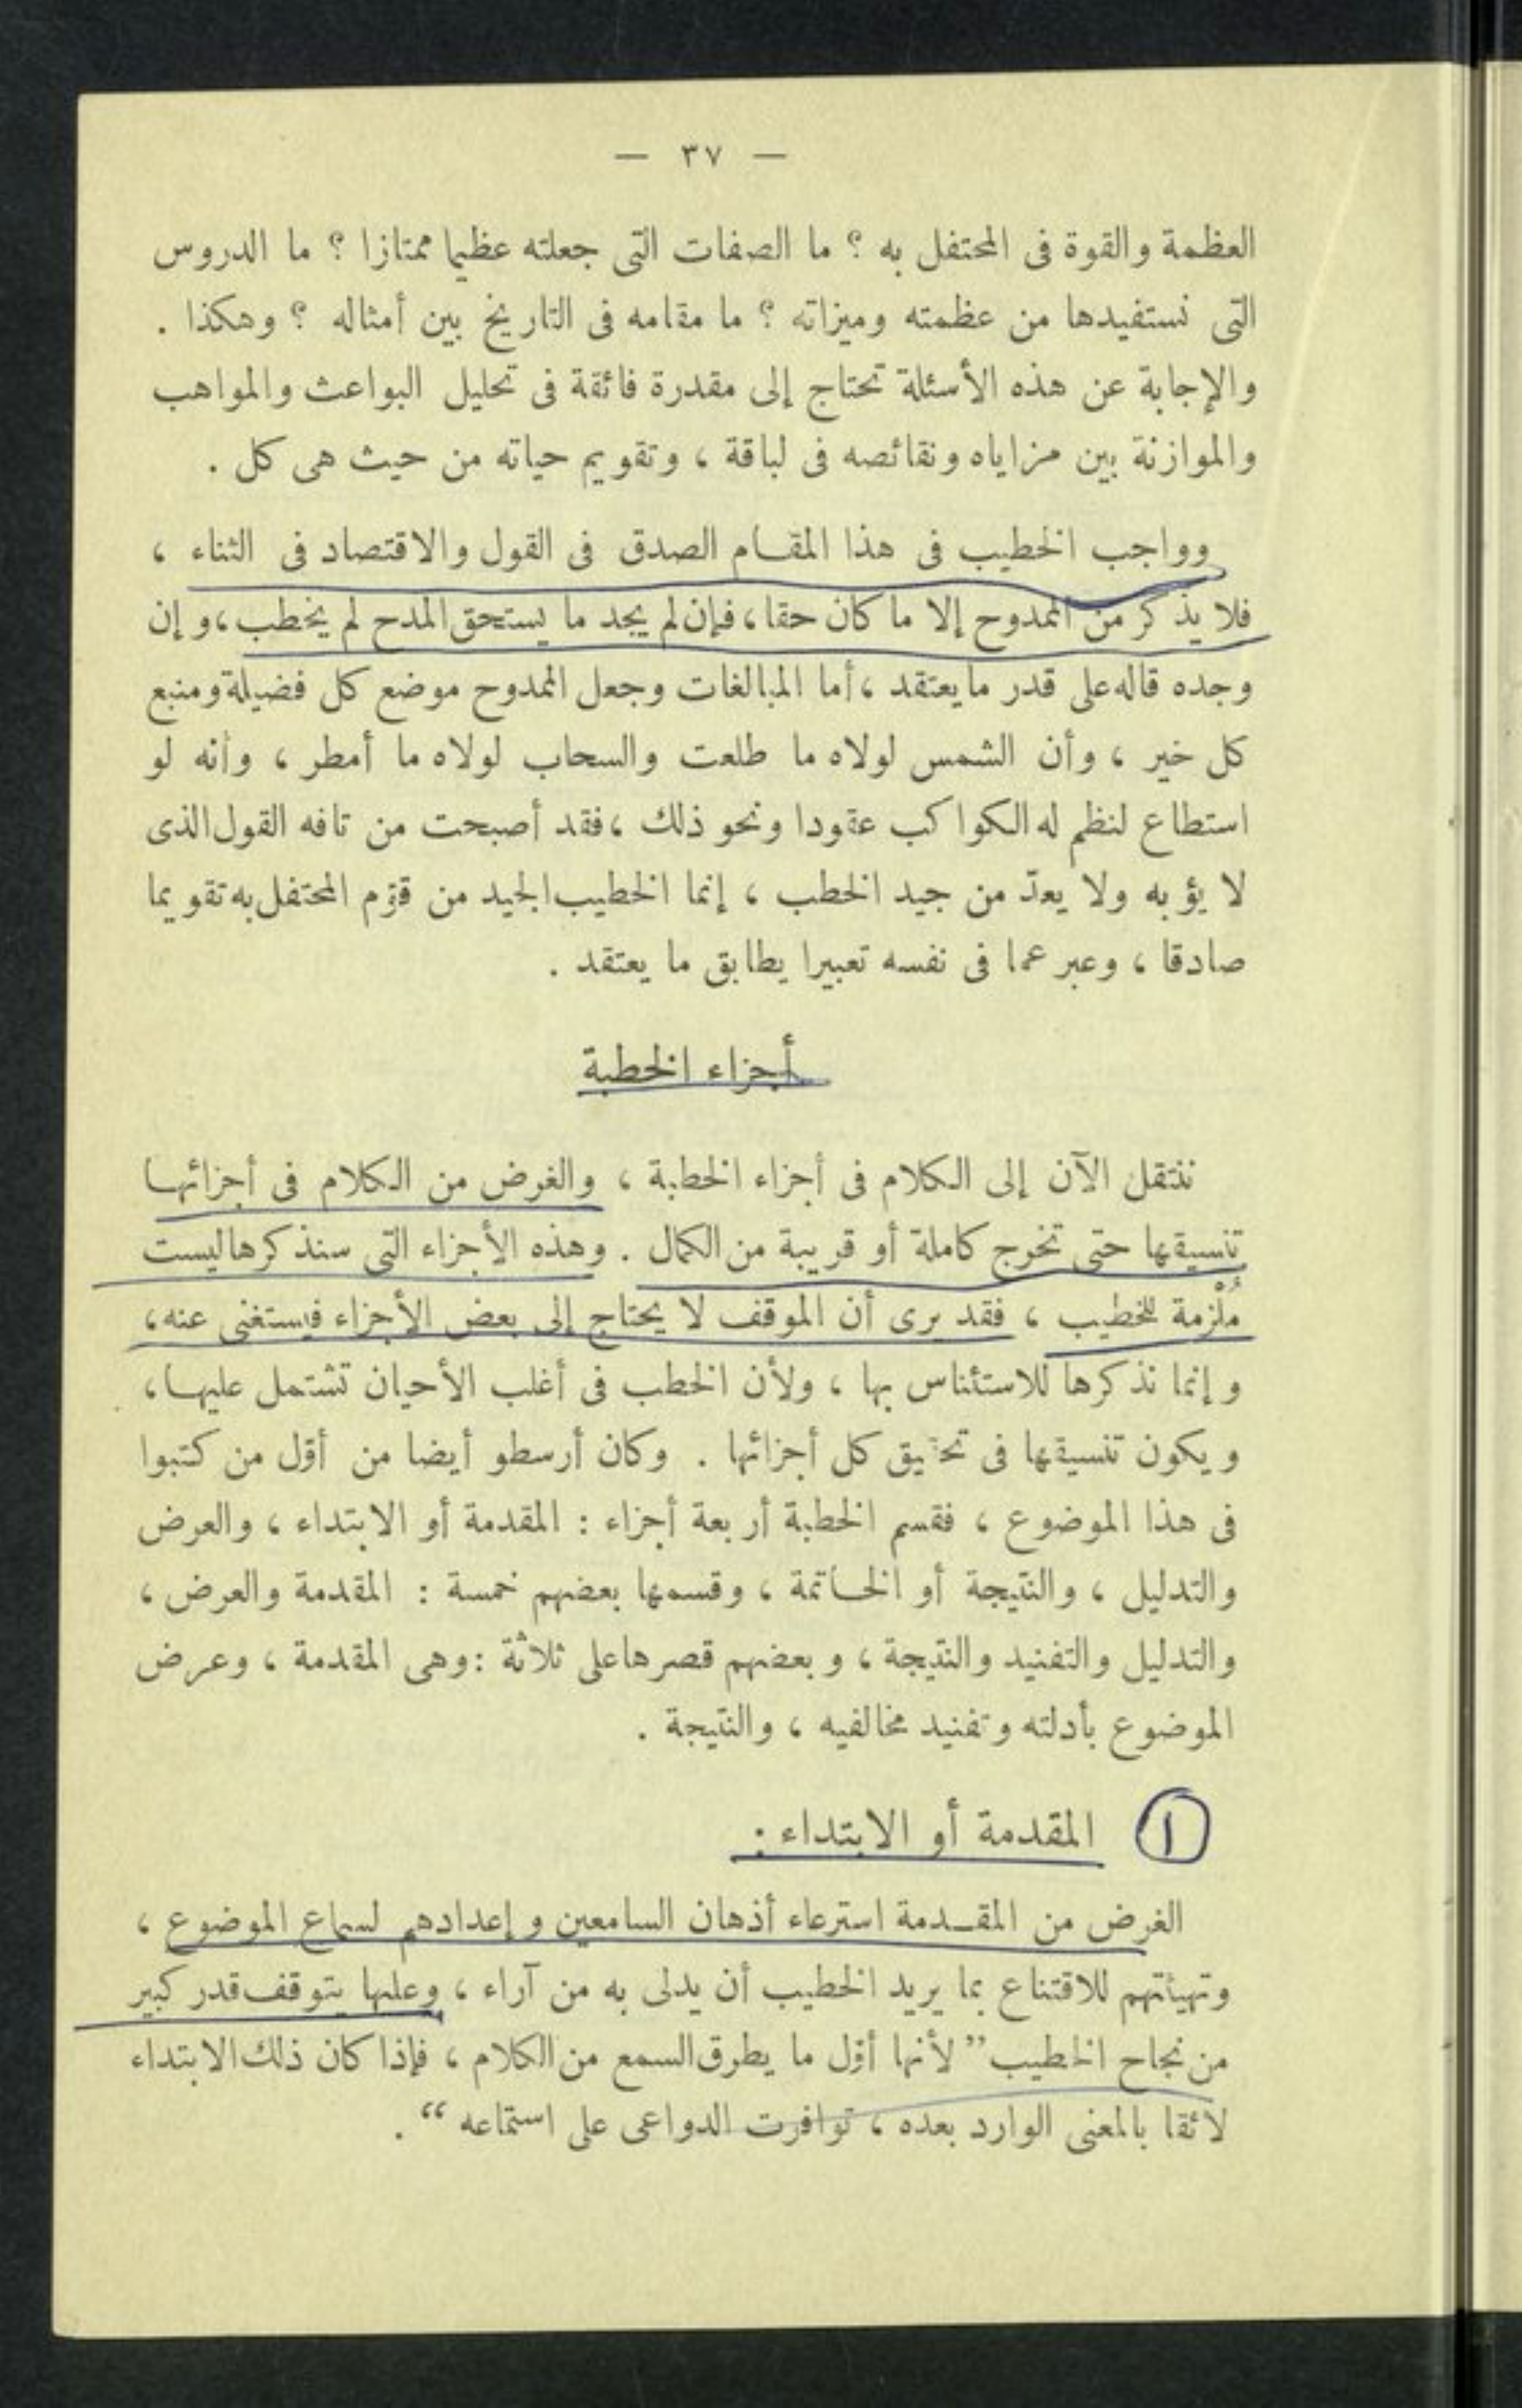 — ٣٧ —
العظمة والقوة فى المحتفل به ؟ ما الصفات التى جعلته عظيما ممتازا ؟ ما الدروس
التى نستفيدها من عظمته وميزاته ؟ ما مقامه فى التاريخ بين أمثاله ؟ وهكذا .
والإجابة عن هذه الأسئلة تحتاج إلى مقدرة فائقة فى تحليل البواعث والمواهب
والموازنة بين مزاياه ونقائصه فى لباقة ، وتقويم حياته من حيث هى كل .
وواجب الخطيب فى هذا المقام الصدق فى القول والاقتصاد فى الثناء ،
فلا يذكر من الممدوح إلا ما كان حقا ، فإن لم يجد ما يستحق المدح لم يخطب ، وإن
وجده قاله على قدر ما يعتقد ، أما المبالغات وجعل الممدوح موضع كل فضيلة ومنبع
كل خير ، وأن الشمس لولاه ما طلعت والسحاب لولاه ما أمطر ، وأنه لو
استطاع لنظم له الكواكب عقودا ونحو ذلك ، فقد أصبحت من تافه القول الذى
لا يؤبه به ولا يعدّ من جيد الخطب ، إنما الخطيب الجيد من قوّم المحتفل به تقويما
صادقا ، وعبر عما فى نفسه تعبيرا يطابق ما يعتقد .
أجزاء الخطبة
ننتقل الآن إلى الكلام فى أجزاء الخطبة ، والغرض من الكلام فى أجزائها
تنسيقها حتى تخرج كاملة أو قريبة من الكمال . وهذه الأجزاء التى سنذكرها ليست
مُلْزمة للخطيب ، فقد يرى أن الموقف لا يحتاج إلى بعض الأجزاء فيستغنى عنه ،
وإنما نذكرها للاستئناس بها ، ولأن الخطب فى أغلب الأحيان تشتمل عليها ،
ويكون تنسيقها فى تحقيق كل أجزائها . وكان أرسطو أيضا من أوّل من كتبوا
فى هذا الموضوع ، فقسم الخطبة أربعة أجزاء : المقدمة أو الابتداء ، والعرض
والتدليل ، والنتيجة أو الخاتمة ، وقسمها بعضهم خمسة : المقدمة والعرض ،
والتدليل والتفنيد والنتيجة ، وبعضهم قصرها على ثلاثة : وهى المقدمة ، وعرض
الموضوع بأدلته وتفنيد مخالفيه ، والنتيجة .
١ المقدمة أو الابتداء :
الغرض من المقدمة استرعاء أذهان السامعين وإعدادهم لسماع الموضوع ،
وتهيئتهم للاقتناع بما يريد الخطيب أن يدلى به من آراء ، وعليها يتوقف قدر كبير
من نجاح الخطيب ” لأنها أوّل ما يطرق السمع من الكلام ، فإذا كان ذلك الابتداء
لائقا بالمعنى الوارد بعده ، توافرت الدواعى على استماعه “ .